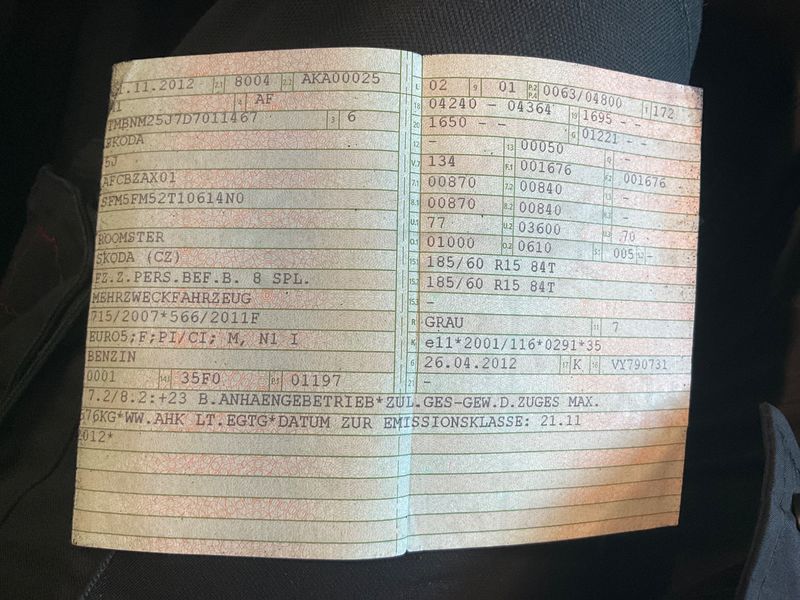 1.11.2012 2.1 8004 2.2 AKA00025
M1 4 AF
TMBNM25J7D7011467 3 6
SKODA
5J
AFCBZAX01
SFM5FM52T10614N0
ROOMSTER
SKODA (CZ)
FZ.Z.PERS.BEF.B. 8 SPL.
MEHRZWECKFAHRZEUG
715/2007*566/2011F
EURO5;F;PI/CI; M, N1 I
BENZIN
0001 14.1 35F0 P.1 01197
7.2/8.2:+23 B.ANHAENGEBETRIEB*ZUL.GES-GEW.D.ZUGES MAX.
76KG*WW.AHK LT.EGTG*DATUM ZUR EMISSIONSKLASSE: 21.11
2012*
L 02 9 01 P.2 P.4 0063/04800 T 172
18 04240 - 04364 19 1695 - -
20 1650 - - G 01221 - -
12 - 13 00050 Q -
V.7 134 F.1 001676 F.2 001676
7.1 00870 7.2 00840 7.3 -
8.1 00870 8.2 00840 8.3 -
U.1 77 U.2 03600 U.3 70
O.1 01000 O.2 0610 S.1 005 S.2 -
15.1 185/60 R15 84T
15.2 185/60 R15 84T
15.3 -
R GRAU 11 7
K e11*2001/116*0291*35
6 26.04.2012 17 K 16 VY790731
21 -